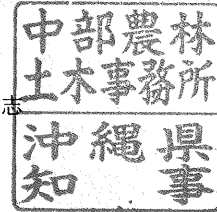 中部農林
土木事務所
志
沖縄県
知事